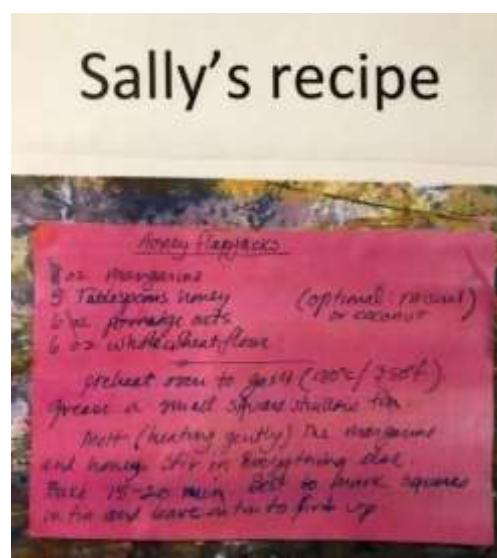 Sally's recipe
Honey Flapjacks
oz margarine
Tablespoons honey (optional: raisins)
6 oz porridge oats or coconut
6 oz wholewheat flour
preheat oven to gas 4 (180°c/350°f)
Grease a small square shallow tin.
Melt (heating gently) The margarine
and honey. Stir in Everything else.
Bake 15-20 min. Best to mark squares
in tin and leave in tin to firm up